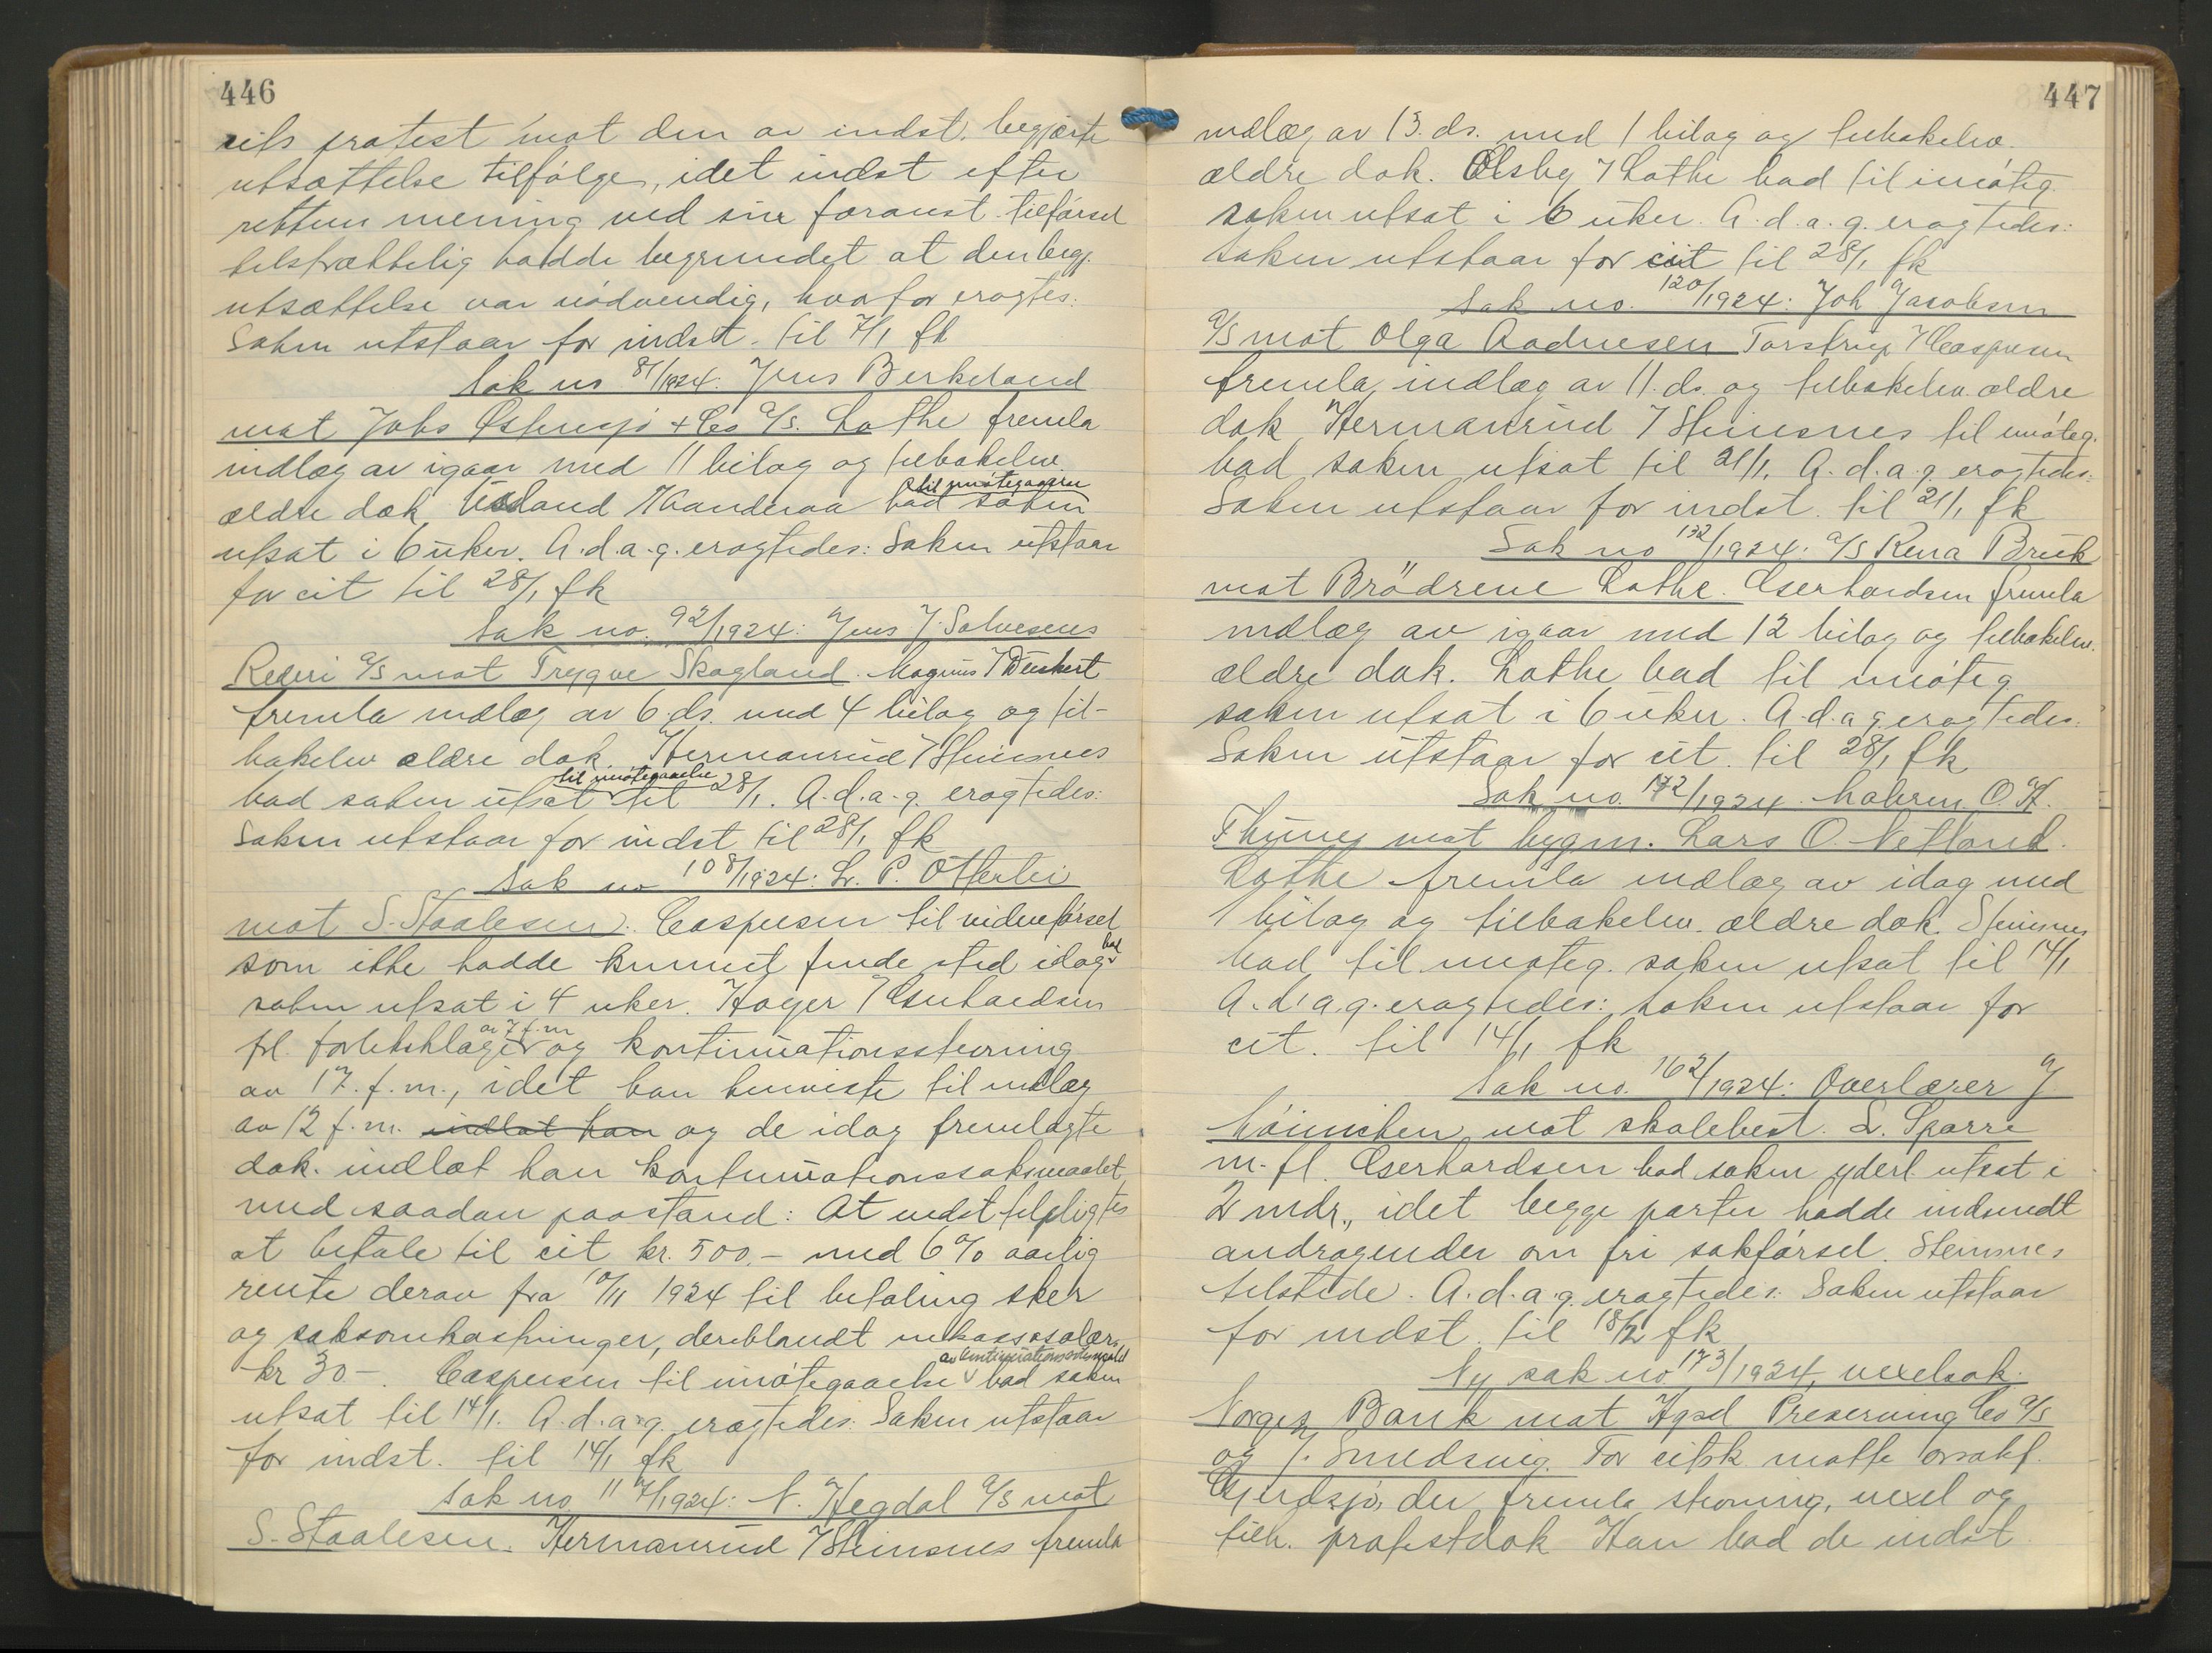 446
cits protest mot den av indst. begjærte
utsættelse tilfølge, idet indst efter
rettens mening ved sin foranst. tilførsel
tilstrækkelig hadde begrundet at den begj.
utsættelse var nødvendig, hvorfor eragtes:
Saken utstaar for indst. til 7/1 fk
Sak no 87/1924. Jens Berkeland
mot Johs Østensjø + Co A/S. Lothe fremla
indlæg av igaar med 11 bilag og tilbakelev.
ældre dok. Usland f/Kanderaa bad til imøtegaaelse saken
utsat i 6 uker. A.d.a.g. eragtedes: Saken utstaar
for cit til 28/1 fk
Sak no. 92/1924: Jens J. Salvesens
Rederi A/S mot Trygve Skogland. Magnus f/Weickert
fremla indlæg av 6. ds. med 4 bilag og til-
bakelev ældre dok. Hermanrud f/Steinsnes
bad saken utsat til imøtegaaelse til 28/1. A.d.a.g. eragtedes:
Saken utstaar for indst til 28/1 fk
Sak no 108/1924: L. P. Otterlei
mot S. Staalesen. Caspersen til vidneførsel
som ikke hadde kunnet finde sted idag bad
saken utsat i 4 uker. Høyer f/Eserhardsen
frl. forliksklage av 7 f.m og kontinuationsstevning
av 17. f.m., idet han henviste til indlæg
av 12 f.m. indlot han og de idag fremlagte
dok. indlot han kontinuationssøksmaalet
med saadan paastand: At indst tilpligtes
at betale til cit kr. 500.- med 6% aarlig
rente derav fra 10/11 1924 til betaling sker
og saksomkostninger, deriblandt inkassosalær
kr 30-. Caspersen til imøtegaaelse av kontinuationssøksmaalet bad saken
utsat til 14/1. A.d.a.g. eragtedes: Saken utstaar
for indst. til 14/1 fk
Sak no 117/1924: N. Hegdal A/S mot
S. Staalesen. Hermanrud f/Steinsnes fremla
447
indlæg av 13. ds. med 1 bilag og tilbakelev.
ældre dok. Olsby f/Lothe bad til imøteg.
saken utsat i 6 uker. A.d.a.g. eragtedes:
Saken utstaar for cit til 28/1 fk
Sak no. 120/1924: Joh Jacobsen
A/S mot Olga Aadnesen Torstrup f/Caspersen
fremla indlæg av 11. ds. og tilbakelev. ældre
dok. Hermanrud f/Steinsnes til imøteg.
bad saken utsat til 21/1. A.d.a.g. eragtedes:
Saken utstaar for indst. til 21/1 fk
Sak no 132/1924: A/S Rena Bruk
mot Brødrene Lothe. Eserhardsen fremla
indlæg av igaar med 12 bilag og tilbakelev.
ældre dok. Lothe bad til imøteg
saken utsat i 6 uker. A.d.a.g. eragtedes:
Saken utstaar for cit. til 28/1 fk
Sak no. 172/1924. Malerm. O. A.
Thuney mot bygm. Lars O. Netland.
Lothe fremla indlæg av idag med
1 bilag og tilbakelev. ældre dok. Steinsnes
bad til imøteg. saken utsat til 14/1
A.d.a.g. eragtedes: Saken utstaar for
cit. til 14/1 fk
Sak no. 162/1924: Overlærer J.
Höinichen mot skolebest. L. Sparre
m. fl. Eserhardsen bad saken yderl. utsat i
2 mdr., idet begge parter hadde indsendt
andragender om fri sakførsel. Steinsnes
tilstede. A.d.a.g. eragtedes: Saken utstaar
for indst. til 18/2 fk
Ny sak no 173/1924, vexelsak:
Norges Bank mot Hgsd Preserving Co A/S
og J. Smedsvig. For citsk. møtte orsakf.
Gjerdsjø, der fremla stevning, vexel og
tilh. protestdok. Han bad de indst.